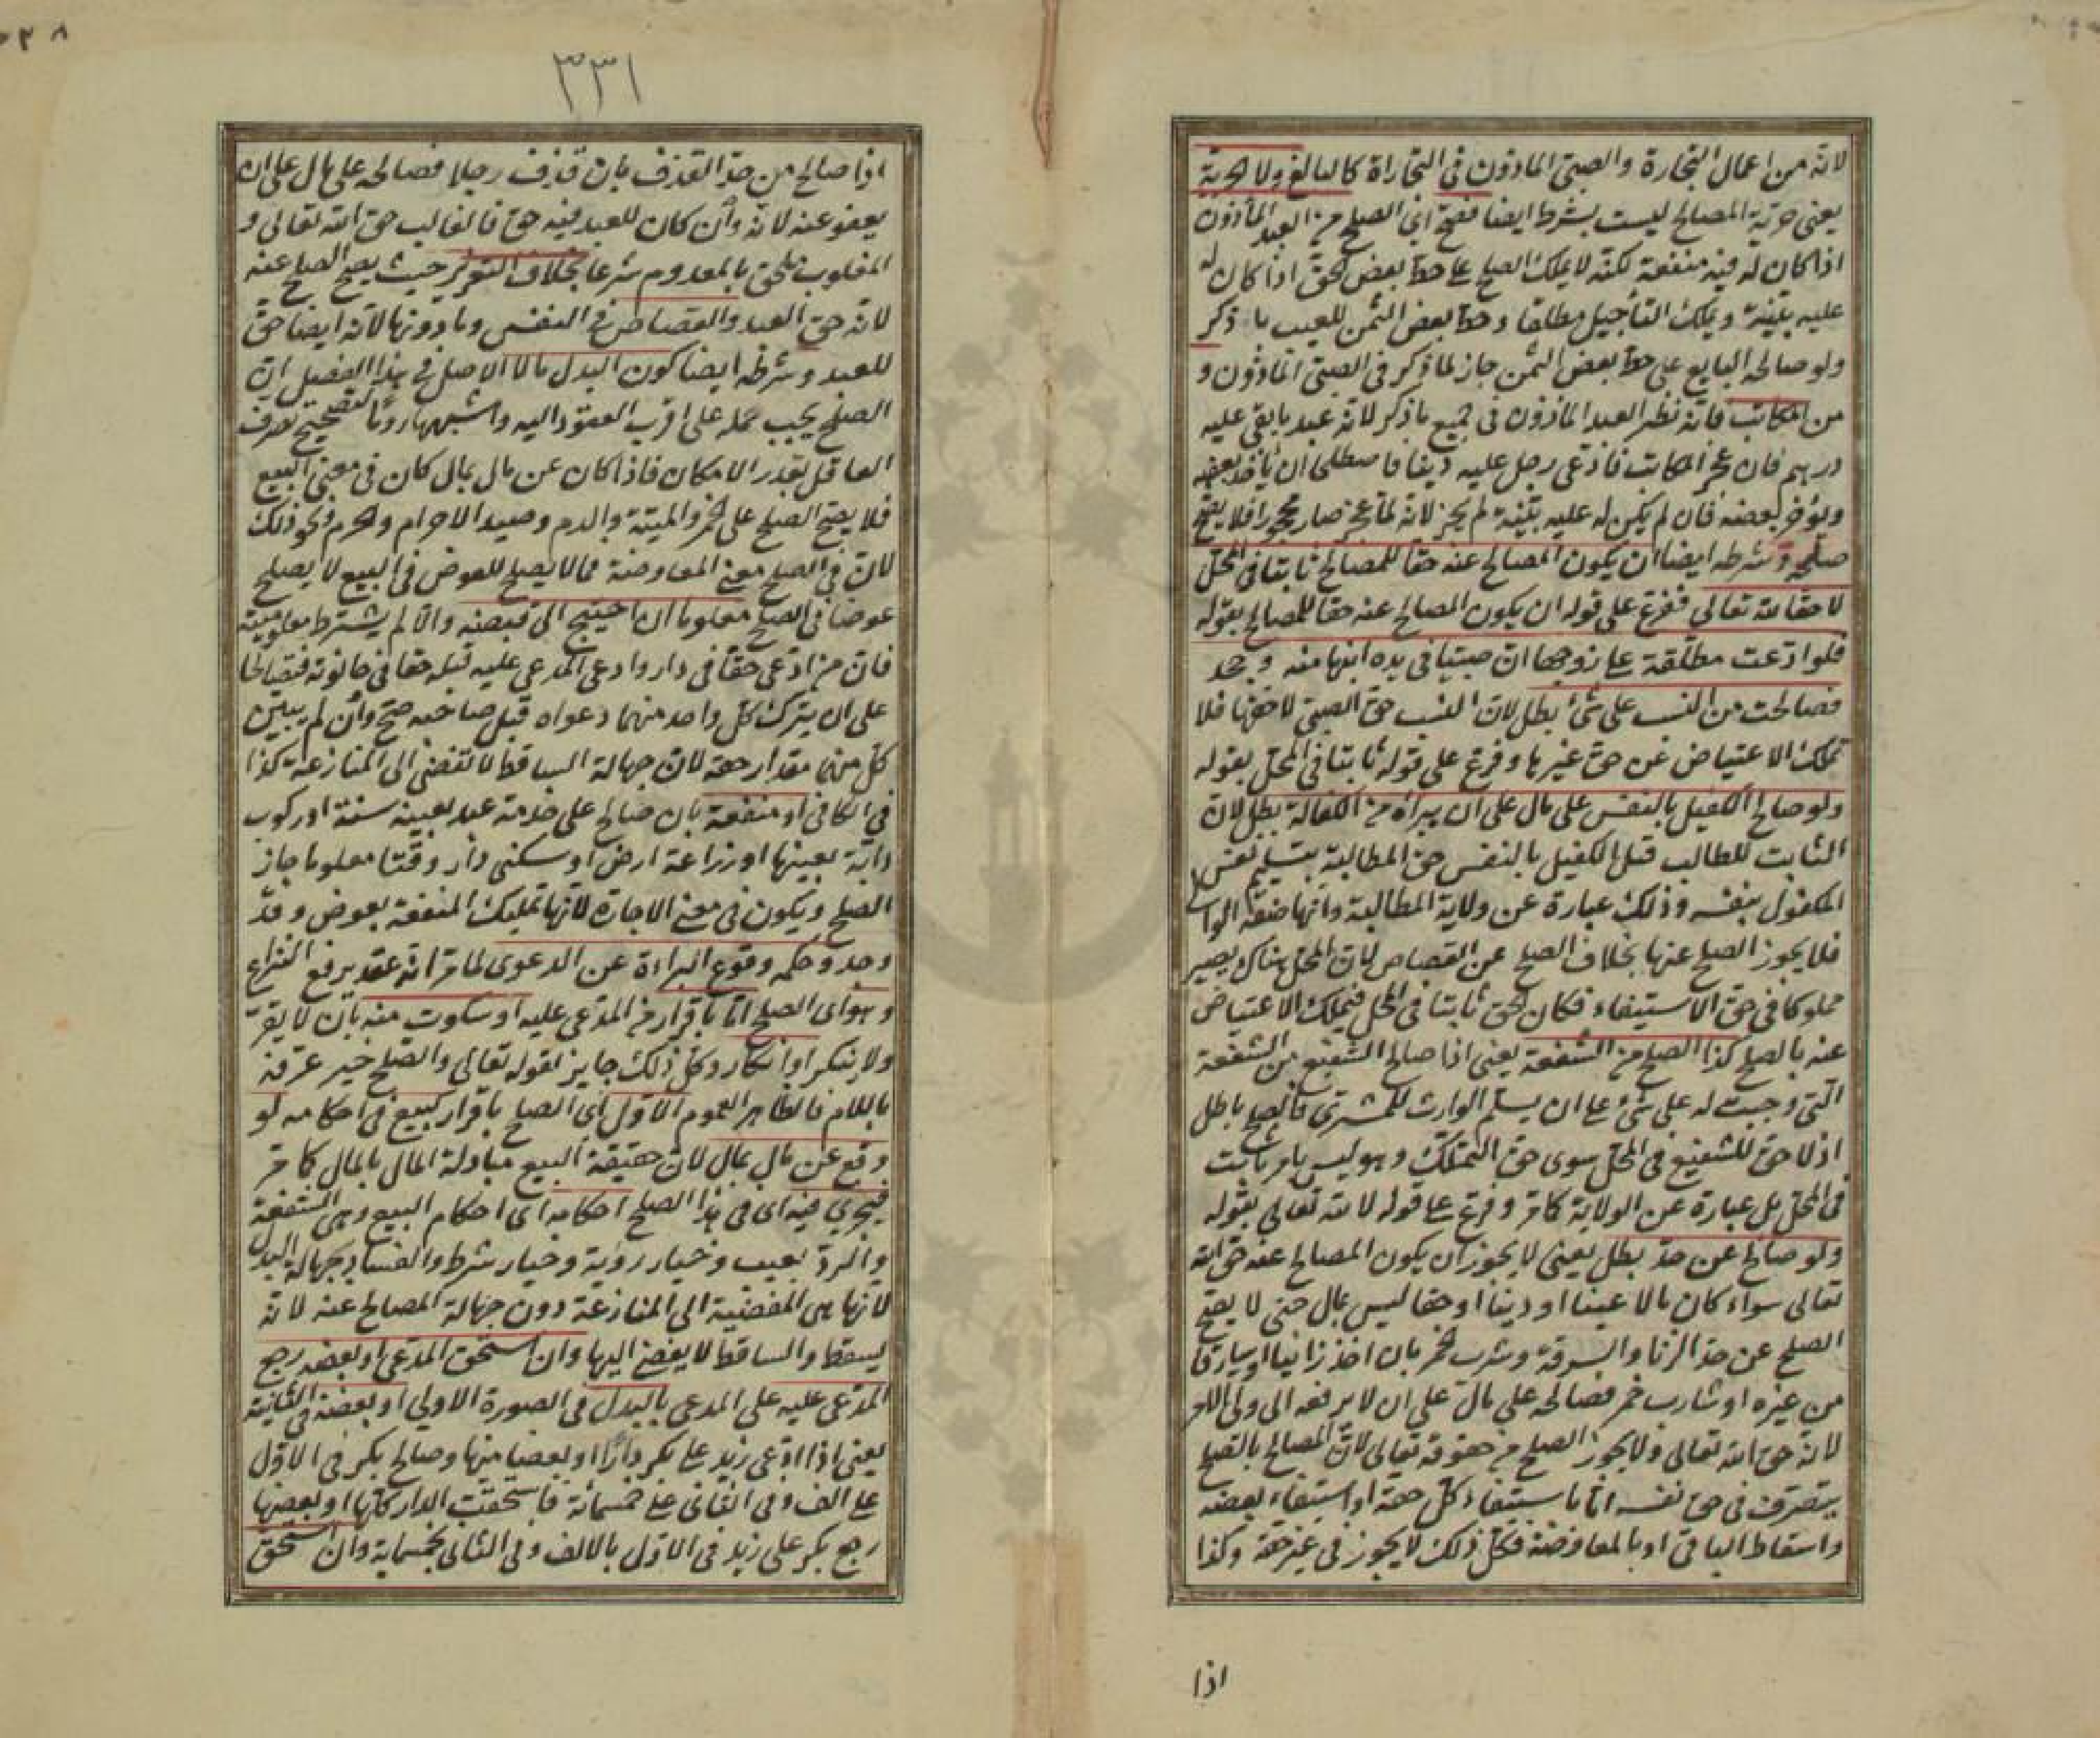 لانه من اعمال التجارة والصبى المأذون فى التجاراة كالبالغ ولا الحرية
يعنى حرية المصالح ليست بشرط ايضا فصح اى الصلح من العبد المأذون
اذا كان له فيه منفعة لكنه لا يملك الصلح على حط بعض الحق اذا كان له
عليه بينة ويملك التأجيل مطلقا وحط بعض الثمن للعيب لما ذكر
ولو صالحه البايع على حط بعض الثمن جاز لما ذكر فى الصبى المأذون و
من المكاتب فانه نظير العبد المأذون فى جميع ما ذكر لانه عبد ما بقى عليه
درهم فان عجز المكاتب فادعى رجل عليه دينا فاصطلحا ان يأخذ بعضه
ويؤخر بعضه فان لم يكن له عليه بينة لم يجز لانه لما عجز صار محجورا فلا يصح
صلحه وشرطه ايضا ان يكون المصالح عنه حقا للمصالح ثابتا فى المحل
لا حقا لله تعالى ففرع على قوله ان يكون المصالح عنه حقا للمصالح بقوله
فلو ادعت مطلقة على زوجها ان صبيا فى يده ابنها منه وجحد
فصالحت من النسب على شئ بطل لان النسب حق الصبى لا حقها فلا
تملك الاعتياض عن حق غيرها وفرع على قوله ثابتا فى المحل بقوله
ولو صالح الكفيل بالنفس على مال على ان يبرأه من الكفالة بطل لان
الثابت للطالب قبل الكفيل بالنفس حق المطالبة بتسليم نفس
المكفول بنفسه وذلك عبارة عن ولاية المطالبة وانها صفة الوالى
فلا يجوز الصلح عنها بخلاف الصلح عن القصاص لان المحل هناك يصير
مملوكا فى حق الاستيفاء فكان الحق ثابتا فى المحل فيملك الاعتياض
عنه بالصلح كذا الصلح من الشفعة يعنى اذا صالح الشفيع من الشفعة
التى وجبت له على شئ على ان يسلم الوارث للمشترى فالصلح باطل
اذ لا حق للشفيع فى المحل سوى حق التملك وهو ليس بامر ثابت
فى المحل بل عبارة عن الولاية كما مر وفرع على قوله لا لله تعالى بقوله
ولو صالح عن حد بطل يعنى لا يجوز ان يكون المصالح عنه حق الله
تعالى سواء كان مالا عينا او دينا او حقا ليس بمال حتى لا يصح
الصلح عن حد الزنا والسرقة وشرب الخمر بان اخذ زانيا او سارقا
من غيره او شارب خمر فصالحه على مال على ان لا يرفعه الى ولى الامر
لانه حق الله تعالى ولا يجوز الصلح من حقوقه تعالى لان المصالح بالصلح
يتصرف فى حق نفسه اما باستيفاء كل حقه او استيفاء بعضه
واسقاط الباقى او بالمعاوضة فكل ذلك لا يجوز فى غير حقه وكذا
اذا
٣٣١
اذا صالح من حد القذف بان قذف رجلا فصالحه على مال على ان
يعفو عنه لانه وان كان للعبد فيه حق فالغالب حق الله تعالى و
المغلوب ملحق بالمعدوم شرعا بخلاف التعزير حيث يصح الصلح عنه
لانه حق العبد والقصاص فى النفس وما دونها لانه ايضا حق
للعبد وشرطه ايضا كون البدل مالا الاصل فى هذا الفصيل ان
الصلح يجب حمله على اقرب العقود اليه واشبهها روما لتصحيح تصرف
العاقل بقدر الامكان فاذا كان عن مال بمال كان فى معنى البيع
فلا يصح الصلح على الخمر والميتة والدم وصيد الاحرام والحرم ونحو ذلك
لان فى الصلح معنى المعاوضة فما لا يصلح للعوض فى البيع لا يصلح
عوضا فى الصلح معلوما ان احتيج الى قبضه والا لم يشترط معلوميته
فان من ادعى حقا فى دار وادعى المدعى عليه قبله حقا فى حانوته فتصالحا
على ان يترك كل واحد منهما دعواه قبل صاحبه صح وان لم يبين
كل منهما مقدار حقه لان جهالة الساقط لا تفضى الى المنازعة كذا
فى الكافى او منفعة بان صالح على خدمة عبد بعينه سنة او ركوب
دابة بعينها او زراعة ارض او سكنى دار وقتا معلوما جاز
الصلح ويكون فى معنى الاجارة لانها تمليك المنفعة بعوض وقد
وجد وحكمه وقوع البراءة عن الدعوى لما مر انه عقد يرفع النزاع
وهو اى الصلح اما باقرار من المدعى عليه او سكوت منه بان لا يقر
ولا ينكر او انكار وكل ذلك جايز لقوله تعالى والصلح خير عرفه
باللام فالظاهر العموم الاول اى الصلح باقرار كبيع فى احكامه لو
وقع عن مال بمال لان حقيقة البيع مبادلة المال بالمال كما مر
فيجرى فيه اى فى هذا الصلح احكامه اى احكام البيع وهى الشفعة
والرد بعيب وخيار رؤية وخيار شرط والفساد بجهالة البدل
لانها هى المفضية الى المنازعة دون جهالة المصالح عنه لانه
يسقط والساقط لا يفضى اليها وان استحق المدعى او بعضه رجع
المدعى عليه على المدعى بالبدل فى الصورة الاولى او بعضه فى الثانية
يعنى اذا ادعى زيد على بكر دارا او بعضا منها وصالح بكر فى الاول
على الف وفى الثانى على خمسمائة فاستحقت الدار كلها او بعضها
رجع بكر على زيد فى الاول بالالف وفى الثانى بخمسماية وان استحق